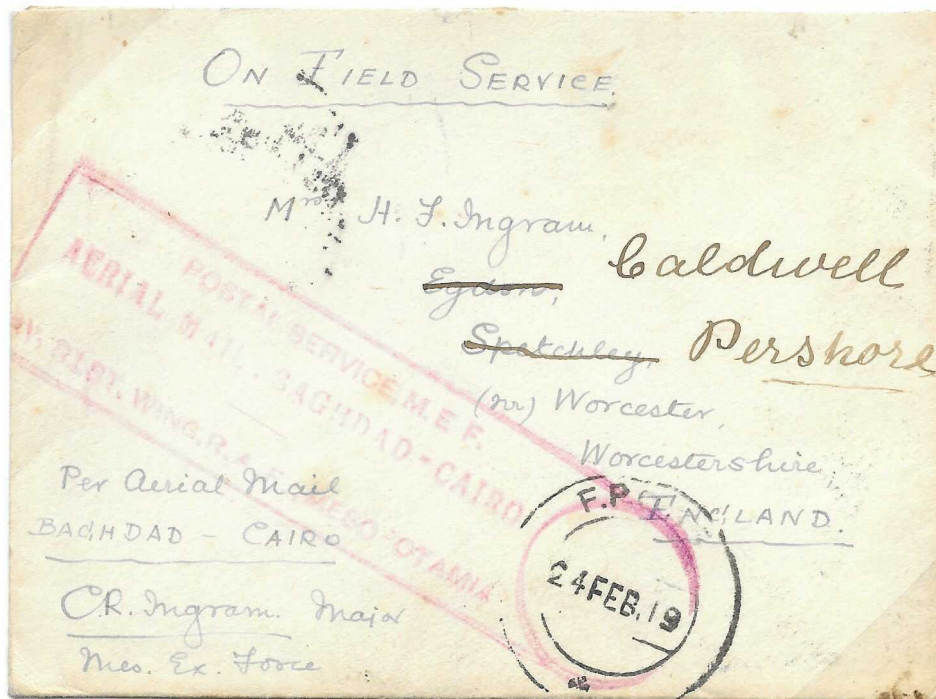 ON FIELD SERVICE
Mrs H. F. Ingram,
Egdon, Caldwell
Spetchley, Pershore
(nr) Worcester,
Worcestershire
ENGLAND.
POSTAL SERVICE, M.E.F.
AERIAL MAIL, BAGHDAD-CAIRO
31ST. WING, R.A.F. MESOPOTAMIA
Per Aerial Mail
BAGHDAD - CAIRO
C.R. Ingram. Major
Mes. Ex. Force
F.P
24 FEB. 19